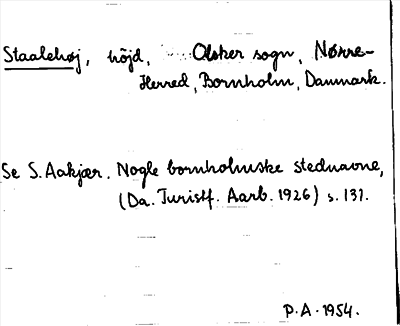 Staalehøj, höjd, Olsker sogn, Nørre-
Herred, Bornholm, Danmark.
Se S. Aakjær. Nogle bornholmske stednavne,
(Da. Turistf. Aarb. 1926) s. 131.
P.A. 1954.